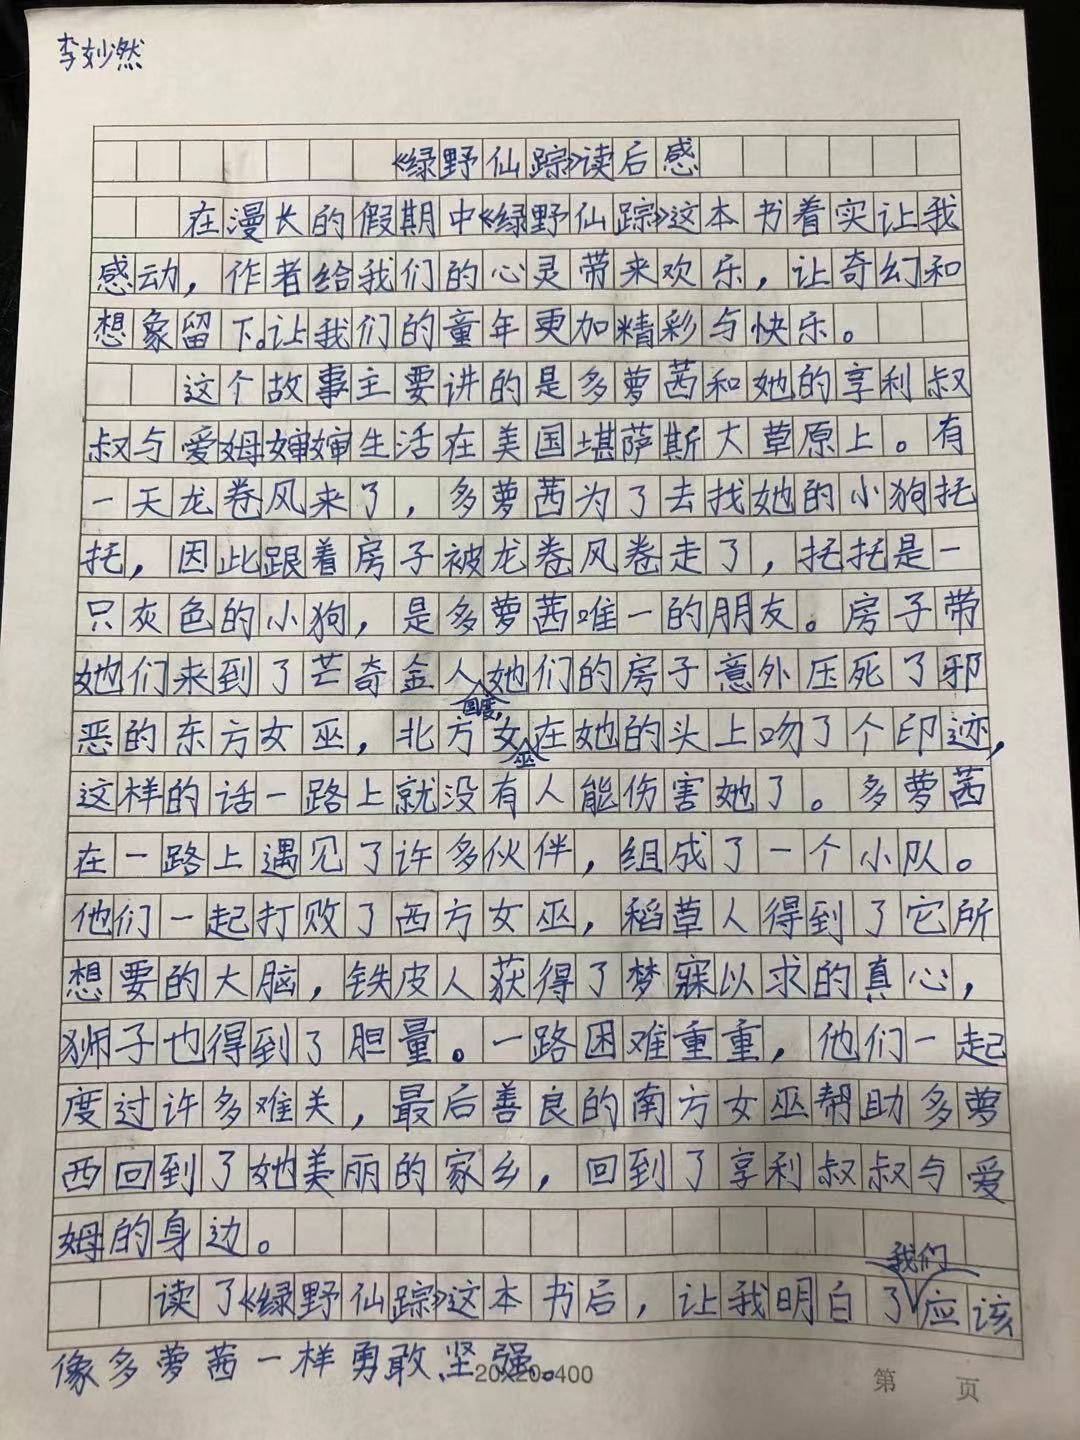 李妙然
《绿野仙踪》读后感
在漫长的假期中《绿野仙踪》这本书着实让我
感动，作者给我们的心灵带来欢乐，让奇幻和
想象留下。让我们的童年更加精彩与快乐。
这个故事主要讲的是多萝茜和她的享利叔
叔与爱姆婶婶生活在美国堪萨斯大草原上。有
一天龙卷风来了，多萝茜为了去找她的小狗托
托，因此跟着房子被龙卷风卷走了，托托是一
只灰色的小狗，是多萝茜唯一的朋友。房子带
她们来到了芒奇金人国度，她们的房子意外压死了邪
恶的东方女巫，北方女巫在她的头上吻了个印迹，
这样的话一路上就没有人能伤害她了。多萝茜
在一路上遇见了许多伙伴，组成了一个小队。
他们一起打败了西方女巫，稻草人得到了它所
想要的大脑，铁皮人获得了梦寐以求的真心，
狮子也得到了胆量。一路困难重重，他们一起
度过许多难关，最后善良的南方女巫帮助多萝
西回到了她美丽的家乡，回到了享利叔叔与爱
姆的身边。
读了《绿野仙踪》这本书后，让我明白了我们应该
像多萝茜一样勇敢坚强。
20×20=400
第 页